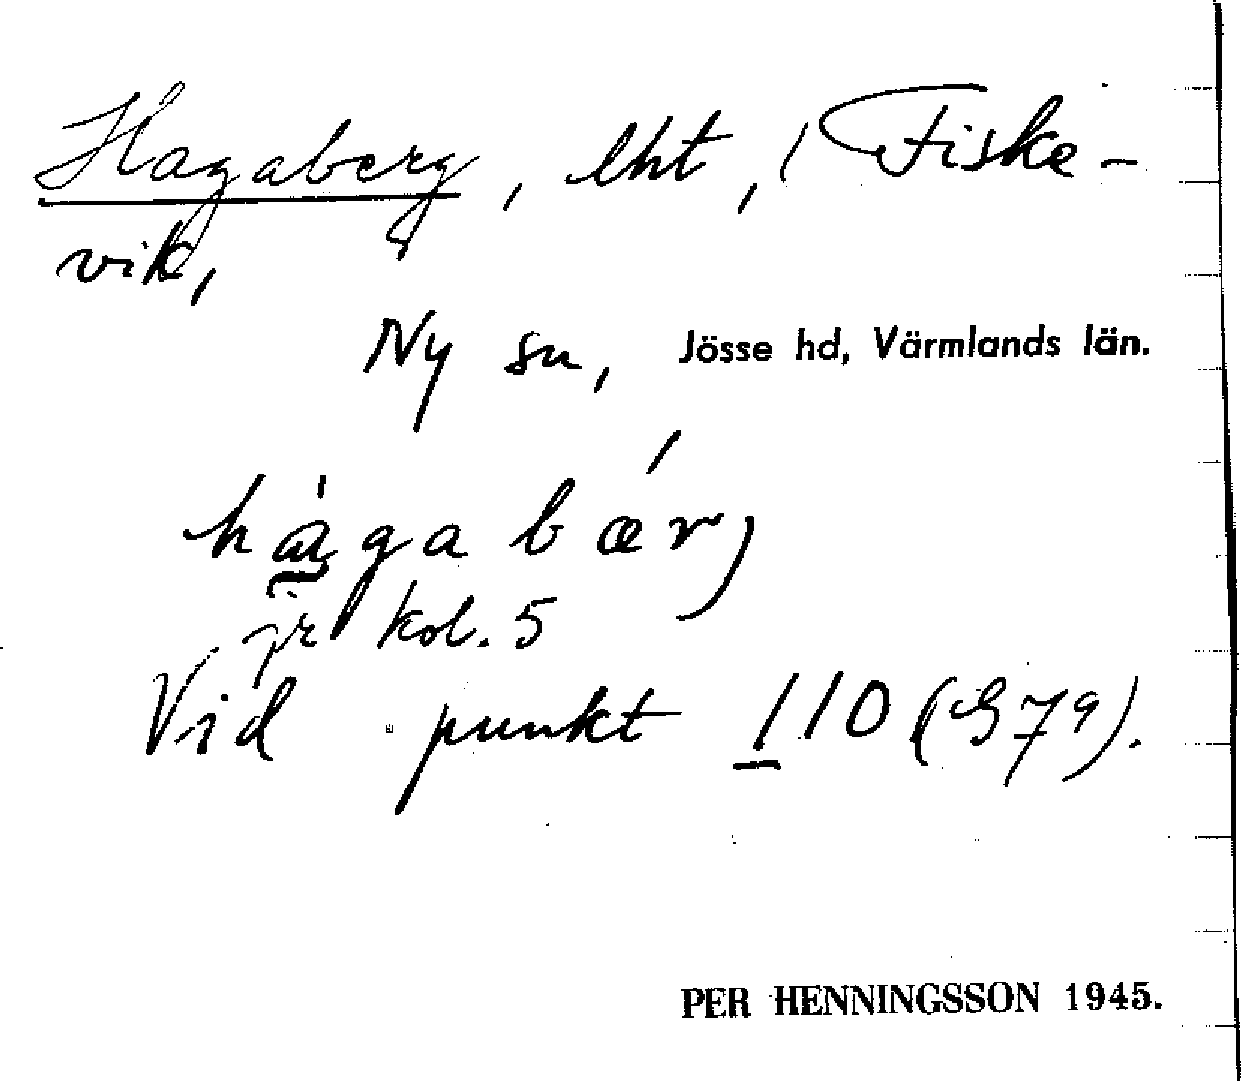 Hagaberg, lht, i Fiske-
vik,
Ny sn, Jösse hd, Värmlands län.
hàgabǽr,
jr kol. 5
Vid punkt 110 (S79).
PER HENNINGSSON 1945.